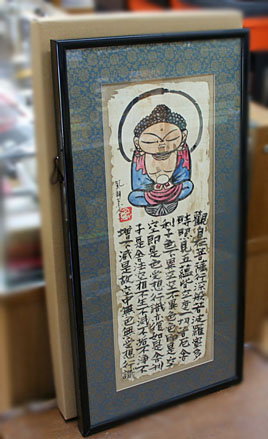 觀自在菩薩行深般若波羅蜜多
時照見五蘊皆空度一切苦厄舍
利子色不異空空不異色色即是空
空即是色受想行識亦復如是舍利
子是諸法空相不生不滅不垢不淨不
增不減是故空中無色無受想行識